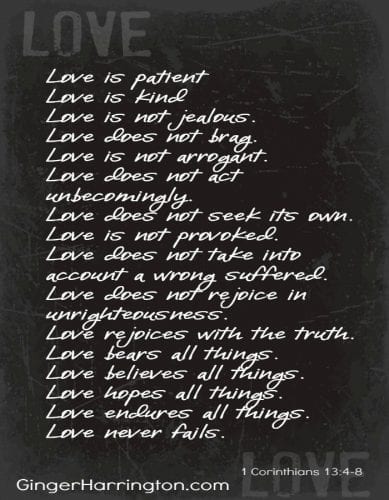 LOVE
Love is patient
Love is kind
Love is not jealous.
Love does not brag.
Love is not arrogant.
Love does not act
unbecomingly.
Love does not seek its own.
Love is not provoked.
Love does not take into
account a wrong suffered.
Love does not rejoice in
unrighteousness.
Love rejoices with the truth.
Love bears all things.
Love believes all things.
Love hopes all things.
Love endures all things.
Love never fails.
1 Corinthians 13:4-8
LOVE
GingerHarrington.com